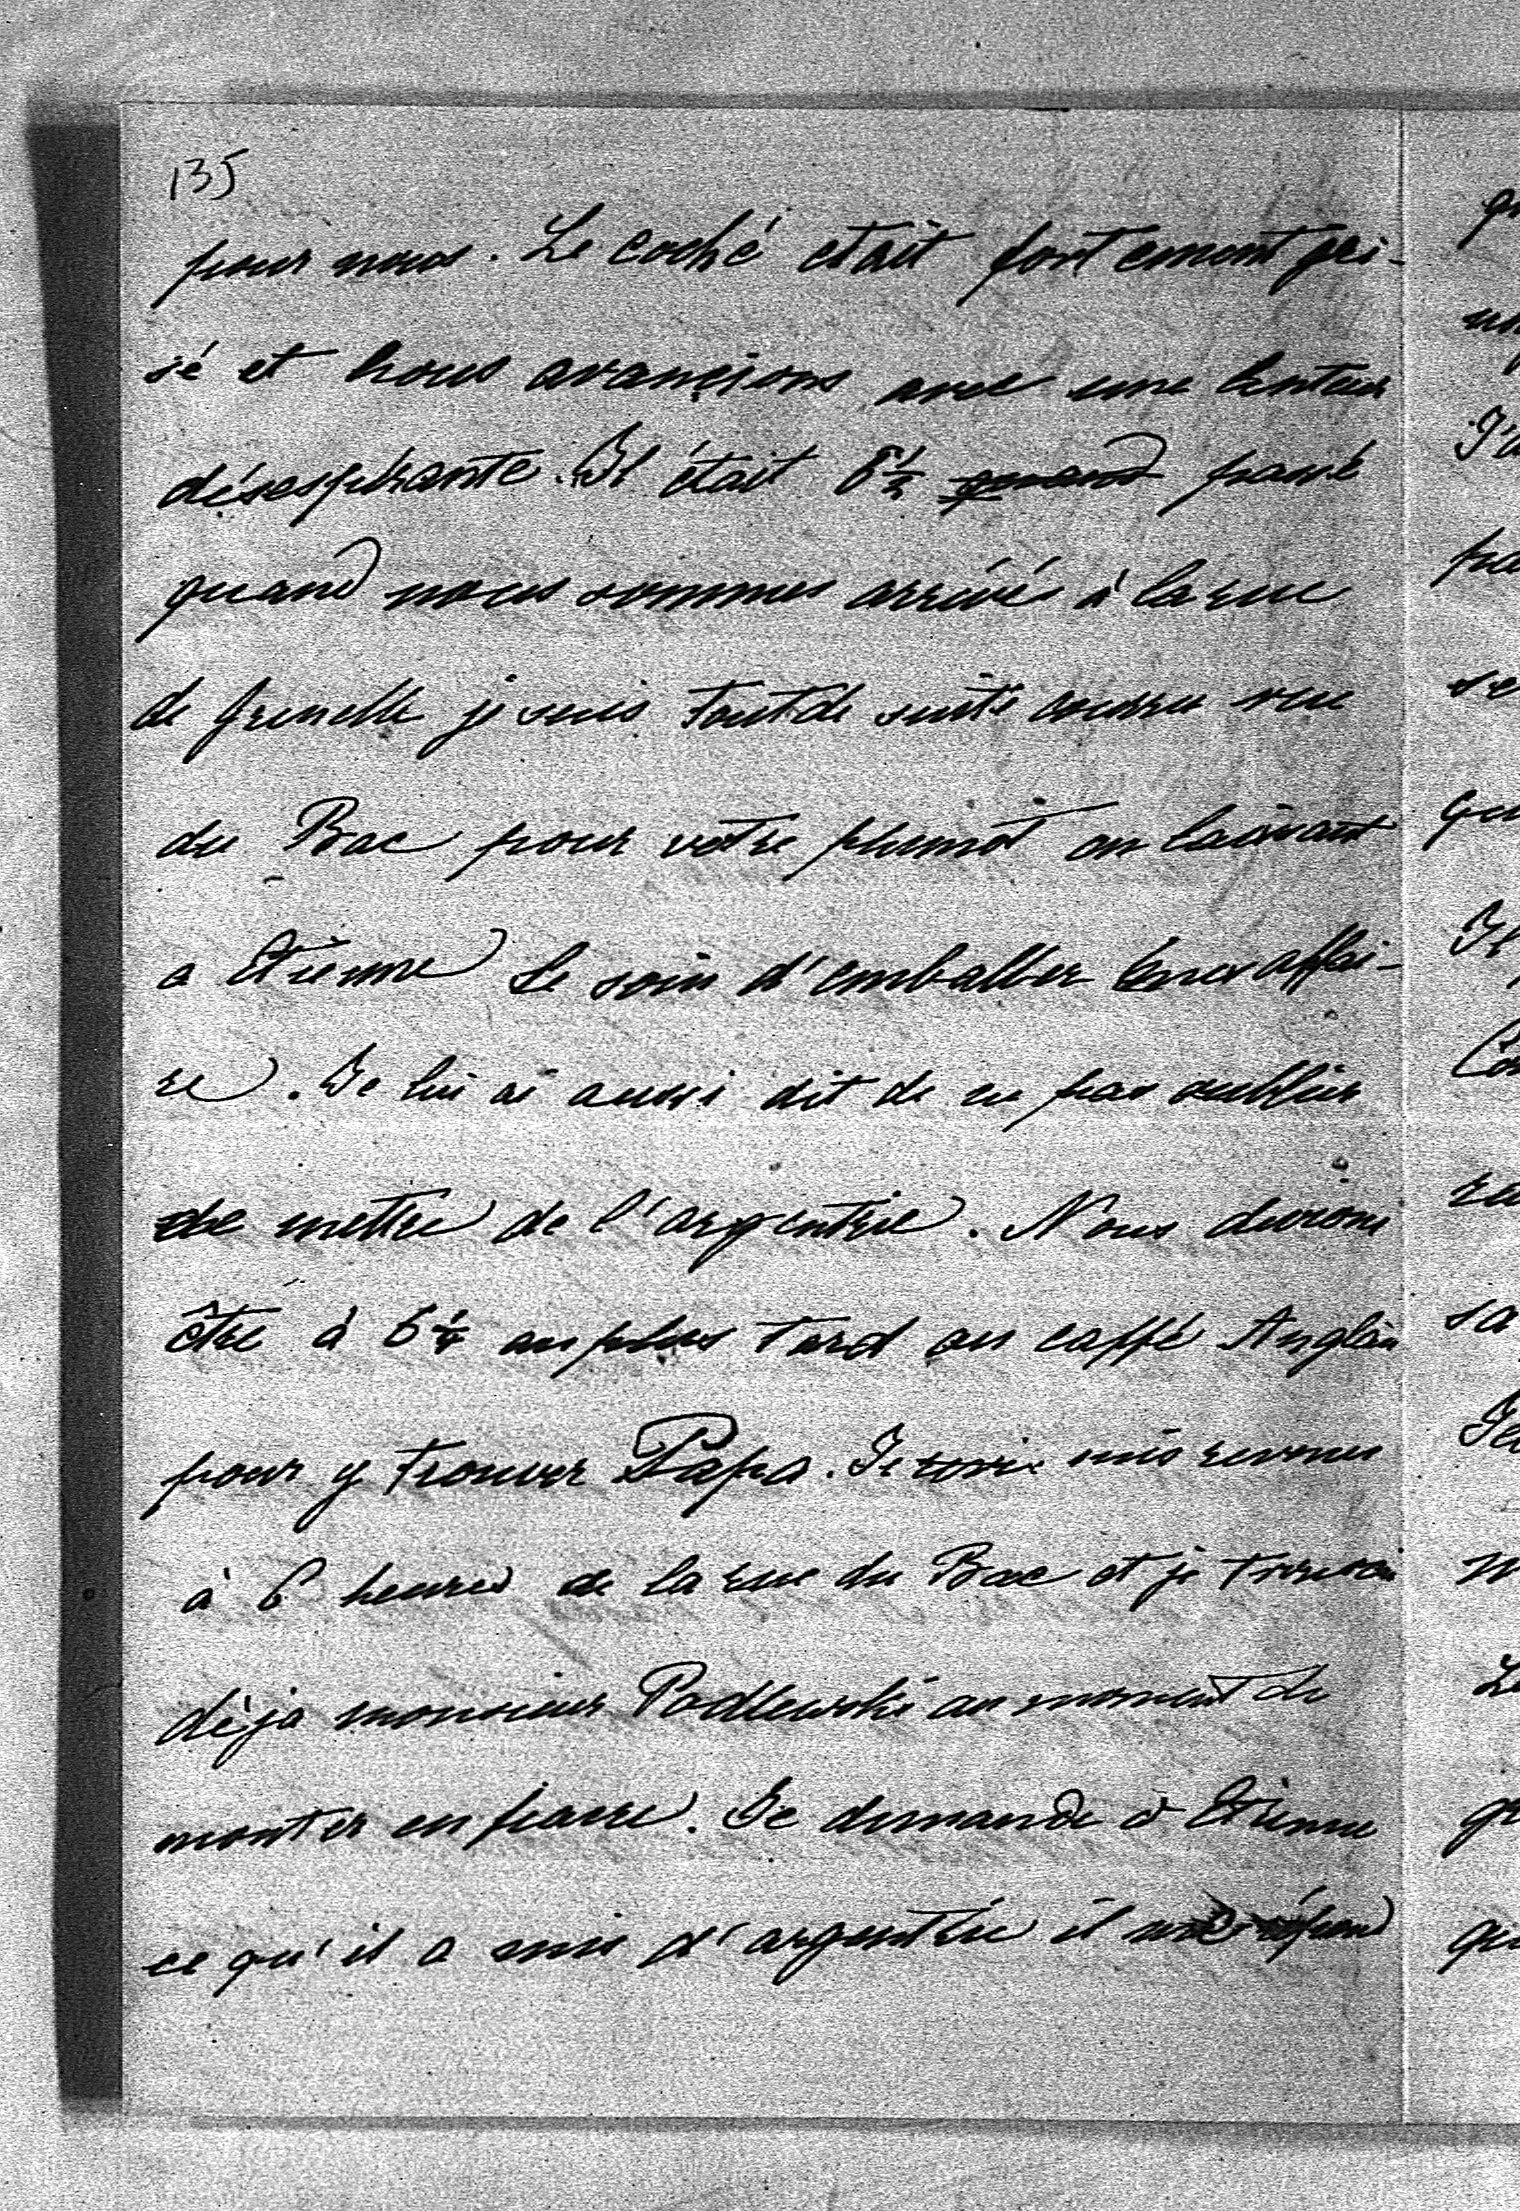 135
pour nous. Le coché etait fortement gri-
sé et nous avançions avec une lenteur
désesperante. Il était 5½ quand passé
quand nous sommes arrivés à la rue
de grenelle je suis tout de suite couru rue
du Bac pour votre plumot en laissant
a Etienne le soin d'emballer leurs affai-
re. Je lui ai aussi dit de ne pas oublier
de mettre de l'argentrie. Nous devions
être à 6¼ au plus tard au caffé Anglais
pour y trouver Papa. Je suis revenu
à 6 heures de la rue du Bac et je trouvai
dèja monsieur Podlewski au moment de
monter en fiacre. Je demande à Etienne
ce qu'il a mis d'argentrie il me répond